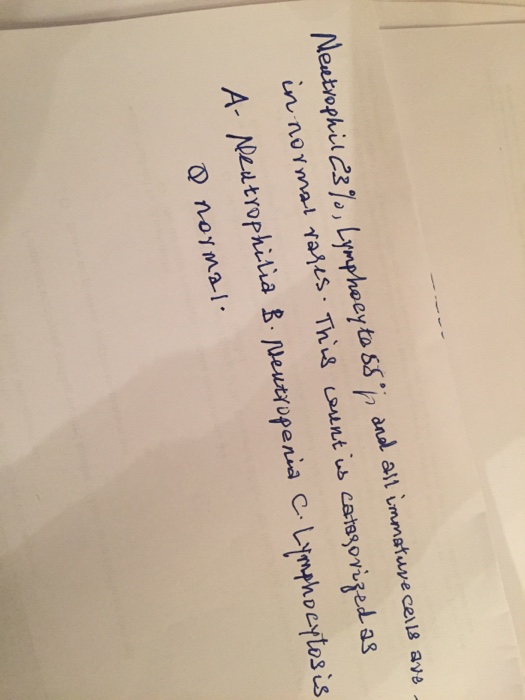 Neutrophil 23%, Lymphocyte 55%, and all immature cells are
in normal rases. This count is catagorized as
A- Neutrophilia B. Neutropenia C. Lymphocytosis
D normal.